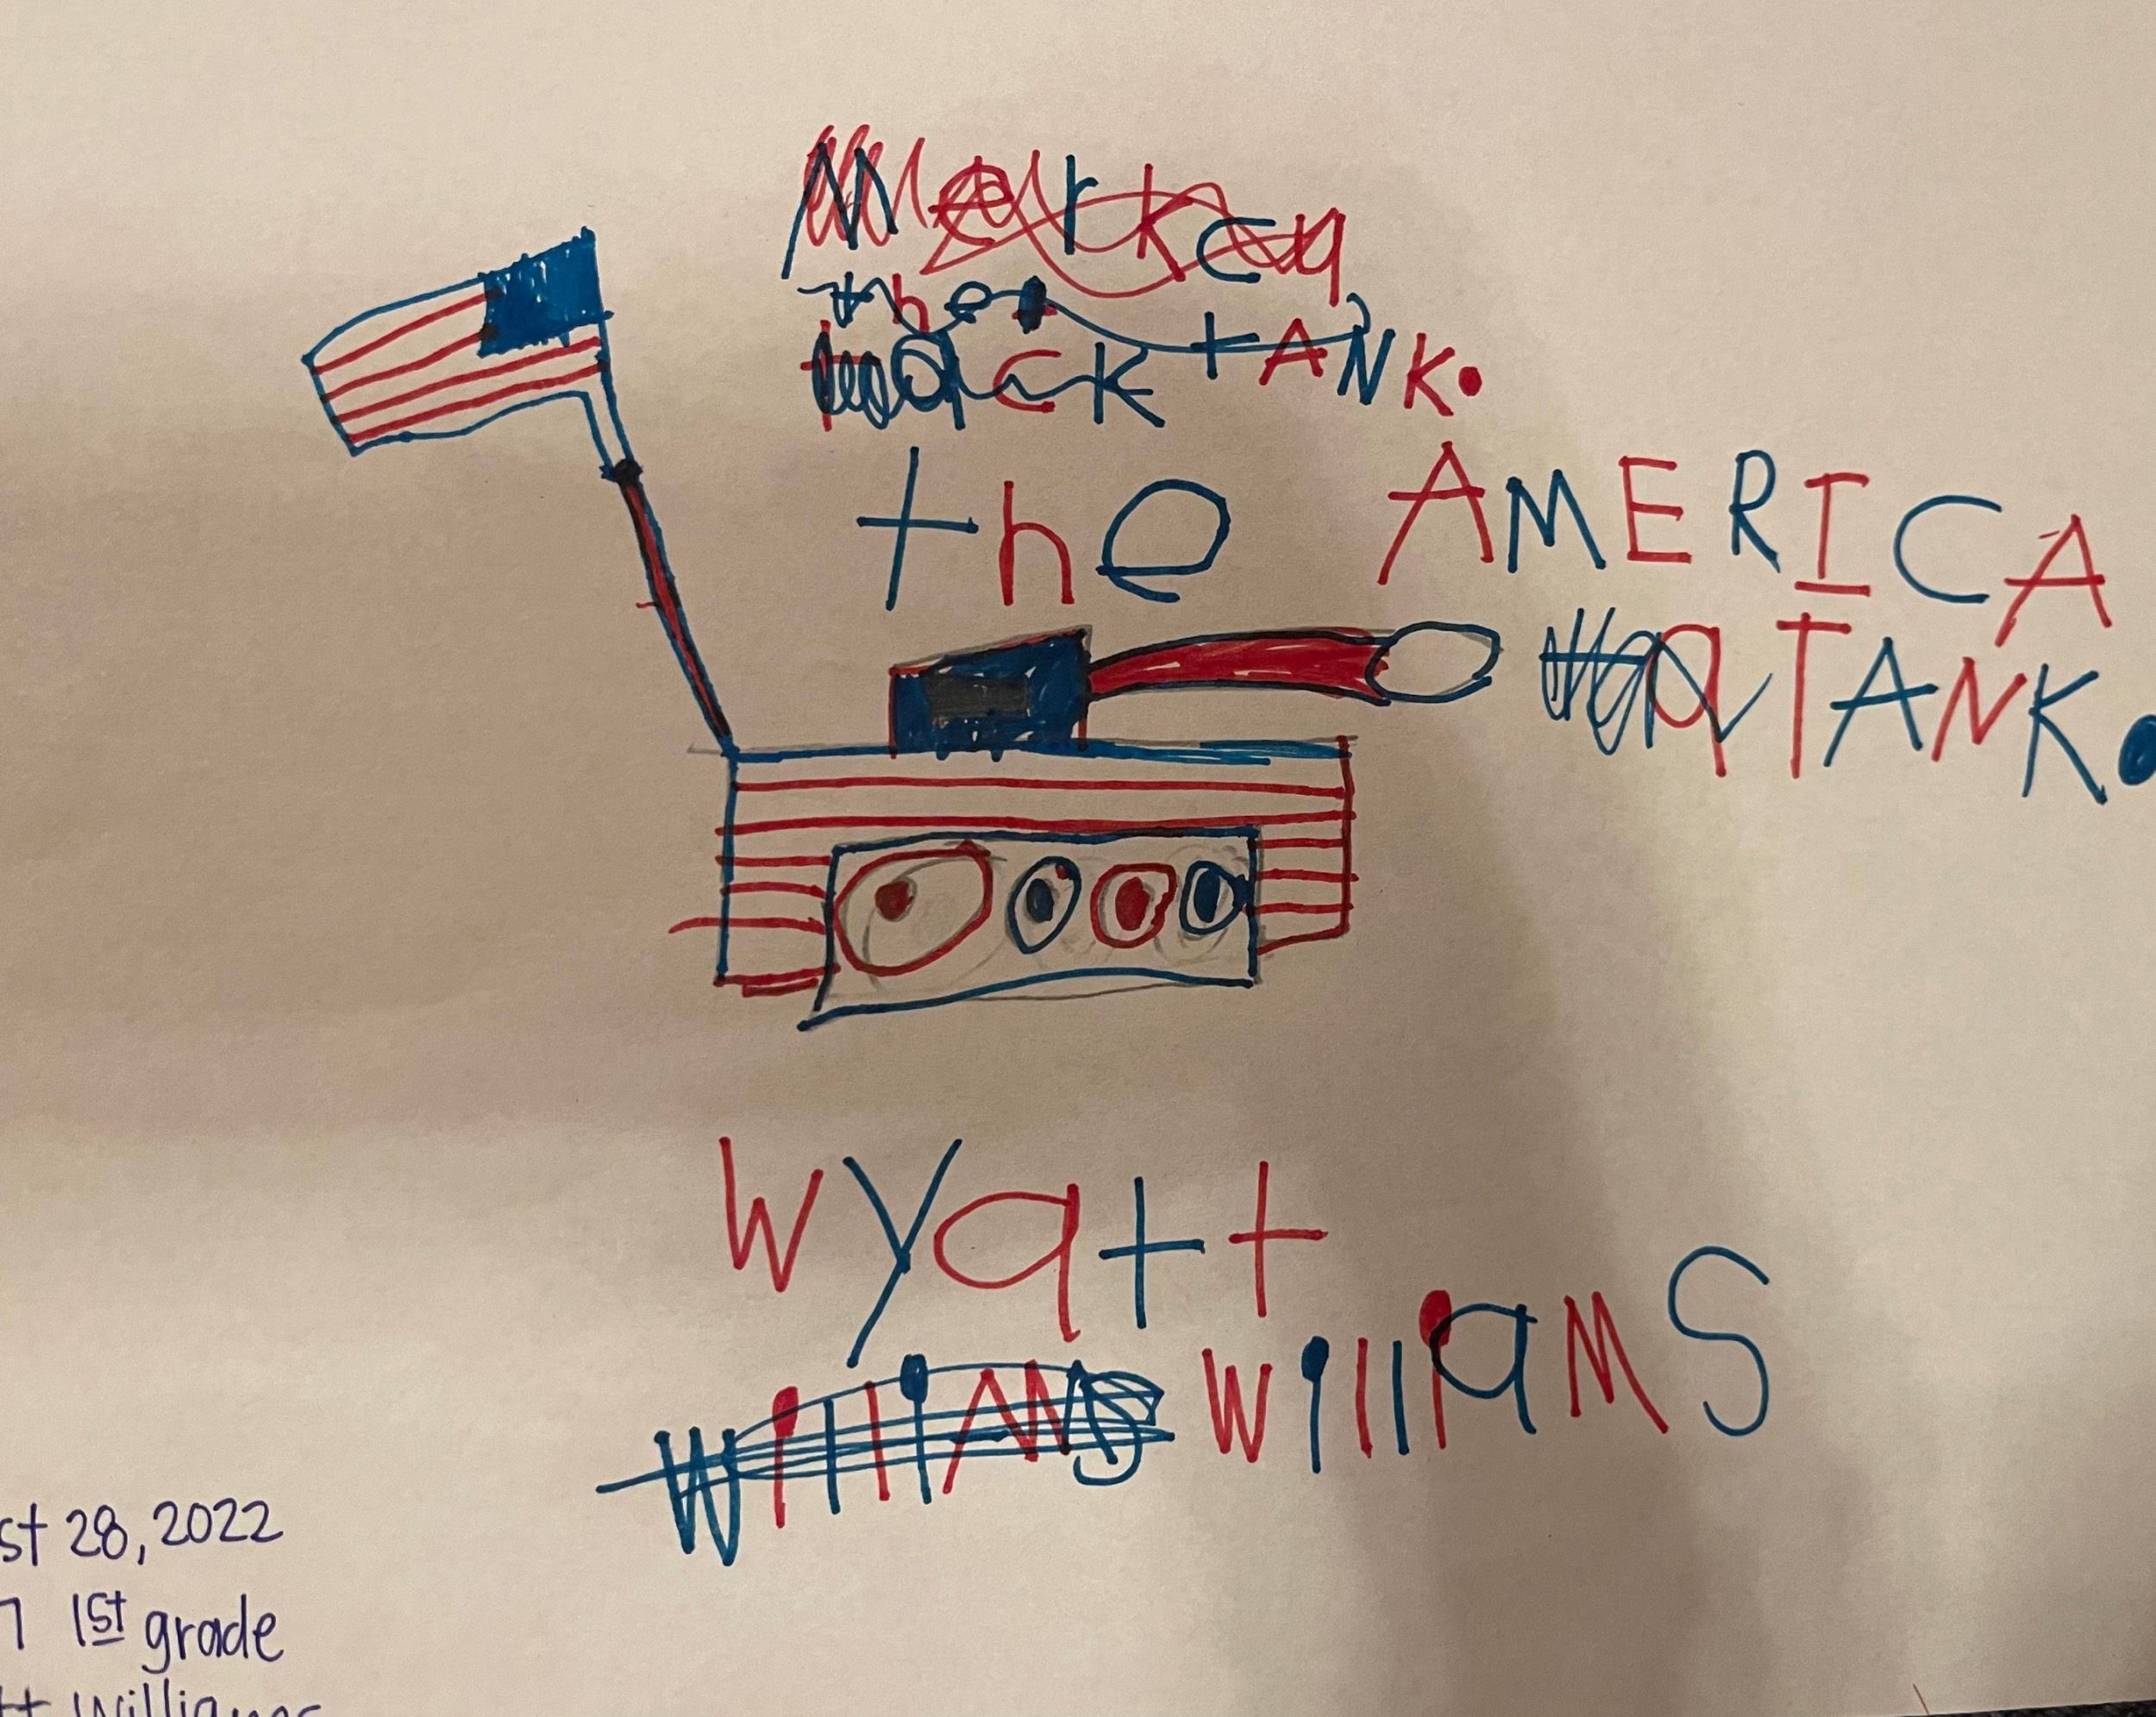 the AMERICA
TANK.
tANK.
wyatt
williAMS williaMS
st 28, 2022
7 1st grade
tt Williams